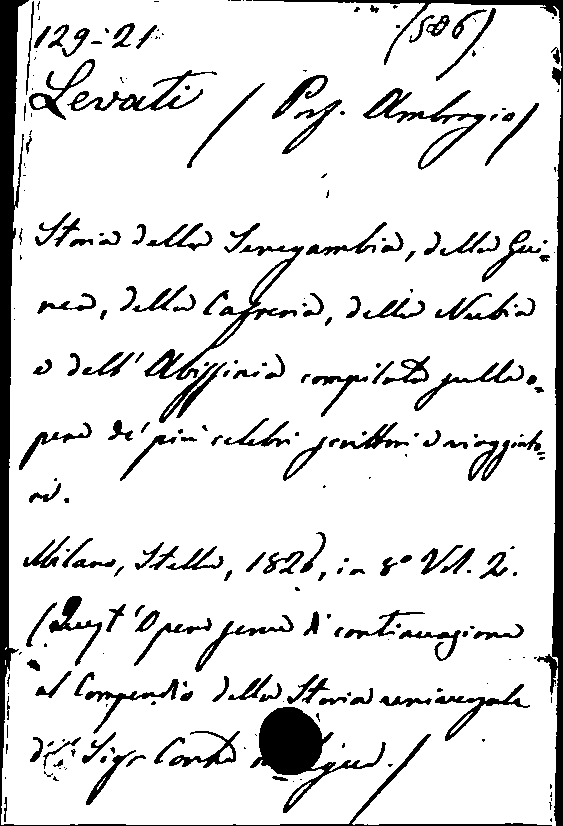 129-21 (586)
Levati / Prof. Ambrogio/
Storia della Senegambia, della Gui=
nea, della Cafreria, della Nubia
e dell' Abissinia compilata sulle o=
pere de' più celebri scrittori e viaggiato=
ri.
Milano, Stella, 1826, in 8° Vol. 2.
(Quest'Opera serve di continuazione
al Compendio della Storia universale
del Sigr Conte /